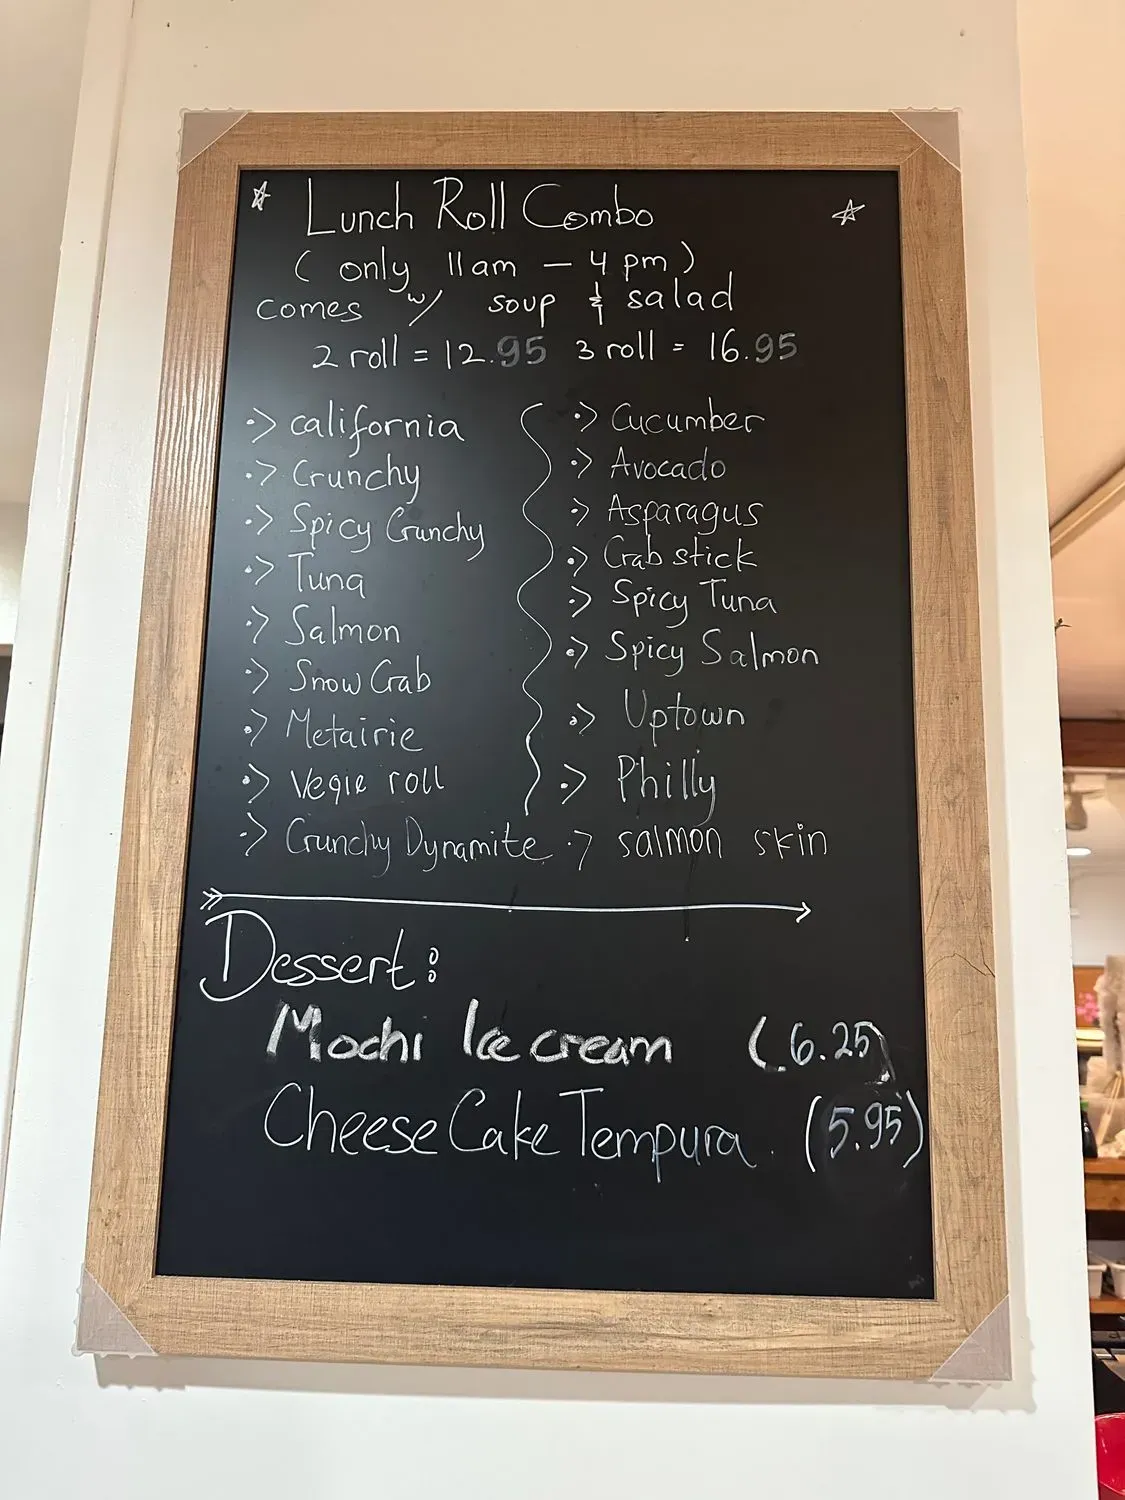 Lunch Roll Combo
(only 11am – 4 pm)
comes w/ soup & salad
2 roll = 12.95 3 roll = 16.95
california
Crunchy
Spicy Crunchy
Tuna
Salmon
Snow Crab
Metairie
Vegie roll
Crunchy Dynamite
Cucumber
Avocado
Asparagus
Crab stick
Spicy Tuna
Spicy Salmon
Uptown
Philly
salmon skin
Dessert:
Mochi Ice cream (6.25)
Cheese Cake Tempura (5.95)